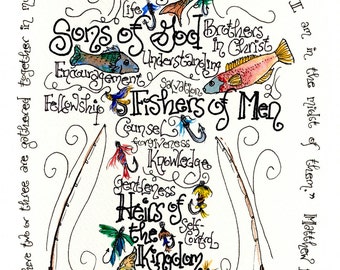 Life
Sons of God
Brothers
In Christ
Understanding
Encouragement
Salvation
Fellowship
Fishers of Men
Counsel
Forgiveness
Knowledge
gentleness
Heirs of
the
Self-
Control
Kingdom
have two or three are gathered together in m
I am in the midst of them." Matthew